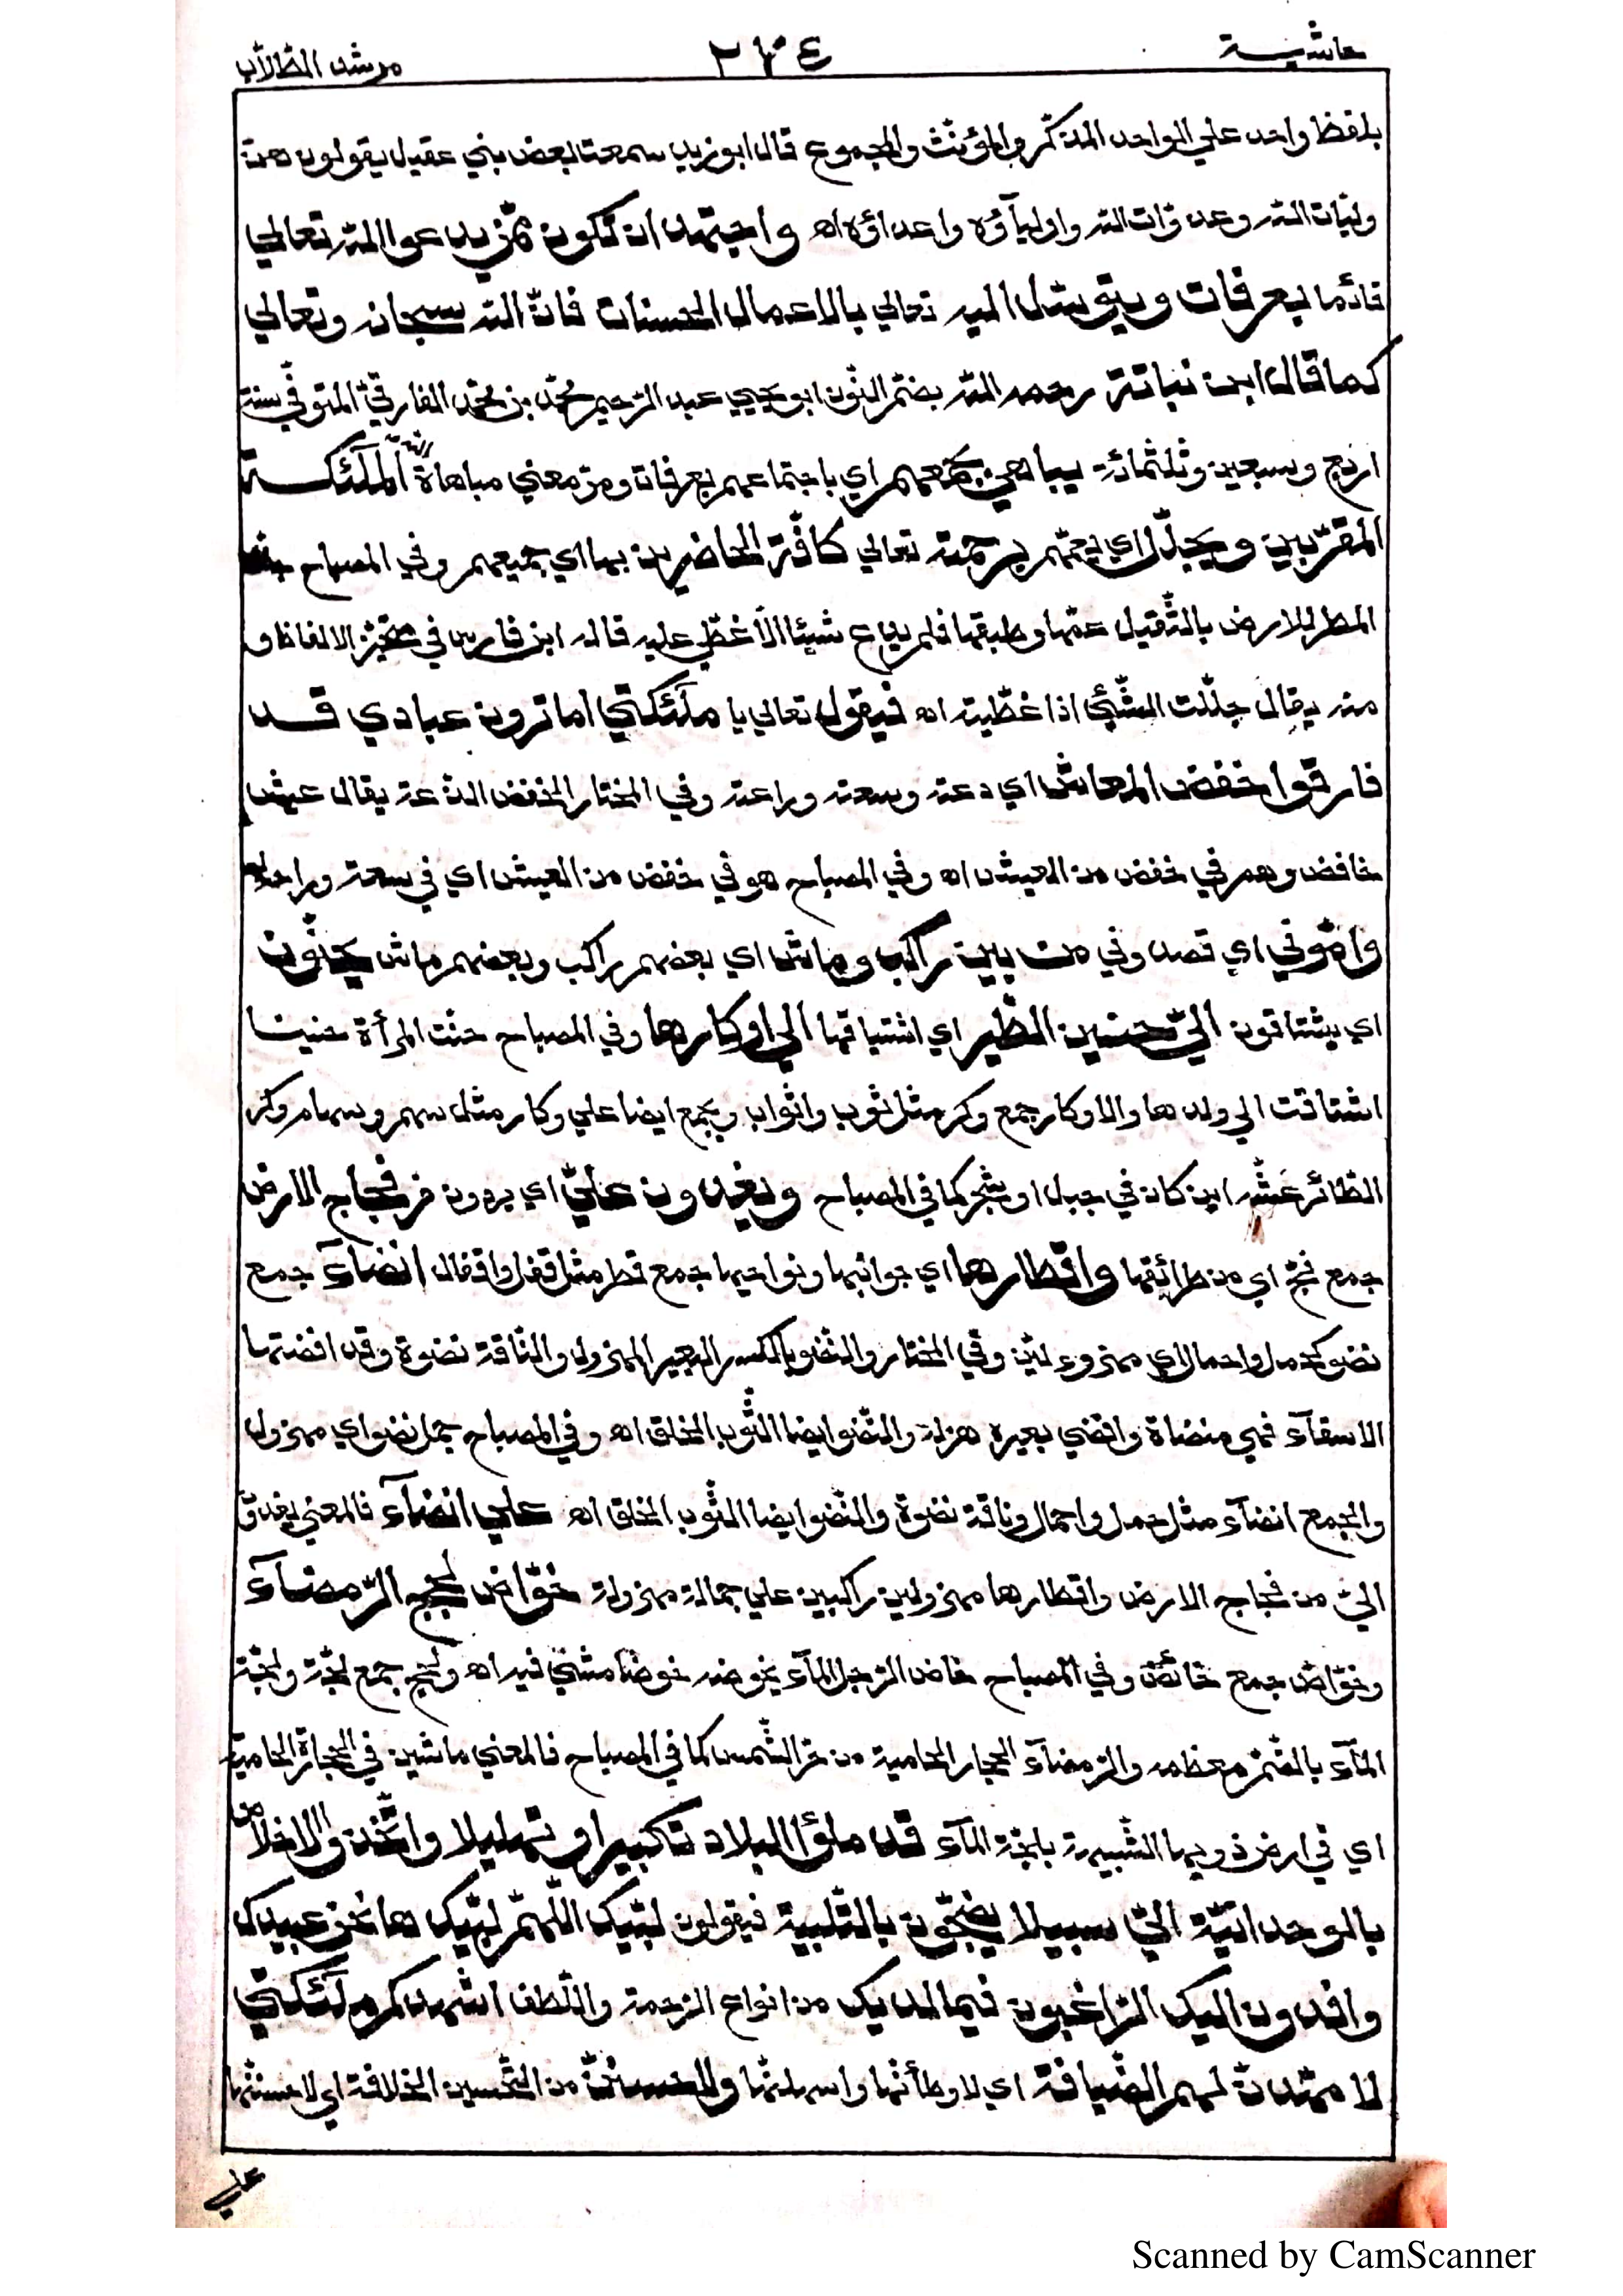 حاشية ٢٣٤ مرشد الطلاب
بلفظ واحد علي الواحد المذكّر والمؤنّث والمجموع قال ابو زيد سمعت بعض بني عقيل يقولون هنّ
وليّات اللّه وعدوّات اللّه واوليآؤه واعداؤه اه واجتهد ان تكون ممّن يدعوا اللّه تعالي
قائما بعرفات ويتوسّل اليه تعالي بالاعمال الحسنات فانّ اللّه سبحانه وتعالي
كما قال ابن نباتة رحمه اللّه بضمّ النّون ابو يحيي عبد الرّحيم محمّد بن محمّد الفارقيّ المتوفّي سنة
اربع وسبعين وثلثمائة يباهي بجمعهم اي باجتماعهم بعرفات ومرّ معني مباهاة اللّه الملآئكة
المقرّبين ويجلّل اي يعمّهم برحمته تعالي كافّة الحاضرين بها اي جميعهم وفي المصباح جلّل
المطر للارض بالتّثقيل عمّها وطبقها فلم يدع شيئا الّا غطّي عليه قاله ابن فارس في متخيّر الالفاظ و
منه يقال جلّلت الشّيئ اذا غطّيته اه فيقول تعالي يا ملآئكتي اما ترون عبادي قد
فارقوا خفض المعاش اي دعته وسعته وراحته وفي المختار الخفض الدّعة يقال عيش
خافض وهم في خفض من العيش اه وفي المصباح هو في خفض من العيش اي في سعة وراحة اه
وامّوني اي قصدوني من بين راكب وماش اي بعضهم راكب وبعضهم ماش يحنّون
اي يشتاقون اليّ حنين الطّير اي اشتياقها الي اوكارها وفي المصباح حنّت المرأة حنينا
اشتاقت الي ولدها والاوكار جمع وكر مثل ثوب واثواب ويجمع ايضا علي وكار مثل سهم وسهام وكر
الطّائر عشّه اين كان في جبل او شجر كما في المصباح ويغدون عليّ اي يردون من فجاج الارض
جمع فجّ اي من طرائقها واقطارها اي جوانبها ونواحيها جمع قطر مثل قفل واقفال انضآء جمع
نضو كحمل واحمال اي مهزوءلين وفي المختار والنّضو بالكسر البعير المهزول والنّاقة نضوة وقد انضتها
الاسفآء فهي منضاة وانضي بعيره هزله والنّضو ايضا الثّوب الخلق اه وفي المصباح جمل نضو اي مهزول
والجمع انضآء مثل حمل واحمال وناقة نضوة والنّضو ايضا الثّوب الخلق اه علي انضآء فالمعني يغدون
اليّ من فجاج الارض واقطارها مهزولين راكبين علي جمالة مهزولة خوّاض لجج الرّمضآء
وخوّاض جمع خائض وفي المصباح خاض الرّجل المآء يخوضه خوضا مشي فيه اه ولجج جمع لجّة ولجّة
المآء بالضّمّ معظمه والرّمضآء الحجارة الحامية من حرّ الشّمس كما في المصباح فالمعني ماشين في الحجارة الحامية
اي في ارض ذويها الشّبيهة بلجّة المآء قد ملؤا البلاد تكبيرا وتهليلا واتّخذوا الاخلاص
بالوحدانيّة اليّ سبيلا يضجّون بالتّلبية فيقولون لبّيك اللّهمّ لبّيك ها نحن عبيدك
وافدون اليك الرّاغبون فيما لديك من انواع الرّحمة واللّطف اشهدكم ملآئكتي
لا مهّدنّ لهم الضّيافة اي لاوطأنّها واسهلنّها ولاحسننّ من التّحسين الخلافة اي لاحسننّها
علي
Scanned by CamScanner